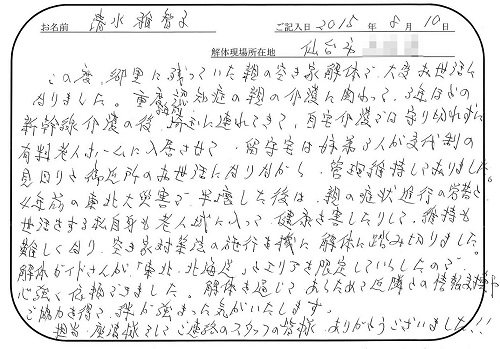 お名前 清水 雅智子 ご記入日 2015 年 8 月 10 日
解体現場所在地 仙台市
この度、郷里に残っていた親の空き家解体で、大変お世話に
なりました。重度認知症の親の介護に関わって、3年ほどの
新幹線介護の後、埼玉に連れてきて、自宅介護では守り切れずに
有料老人ホームに入居させて、留守宅は姉弟3人が交代制の
見回りと御近所のお世話になりながら 管理維持してありました。
4年前の東北大災害で半壊した後は 親の症状進行の
世話をする私自身も老人域に入って 健康を害したりして、維持も
難しくなり、空き家対策法の施行を機に 解体に踏み切りました。
解体ガイドさんが、「東北・北海道」とエリアを限定していらしたので
心強く信頼できました。解体を通じて あらためて近隣との
ご協力を得て、絆が強まった気がいたします。
担当 様そしてご連絡のスタッフの皆様、ありがとうございました!!